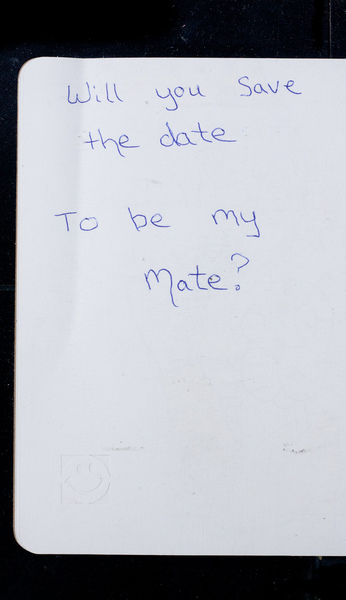 Will you Save
the date
To be my
Mate?